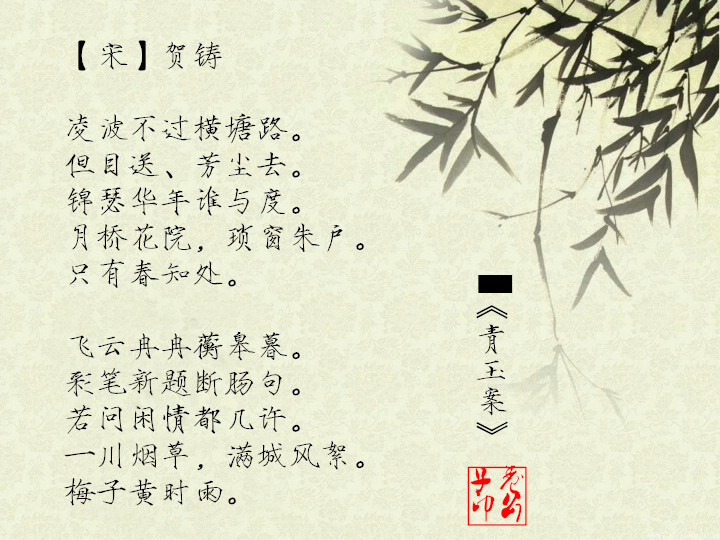 【宋】贺铸
凌波不过横塘路。
但目送、芳尘去。
锦瑟华年谁与度。
月桥花院，琐窗朱户。
只有春知处。
飞云冉冉蘅皋暮。
彩笔新题断肠句。
若问闲情都几许。
一川烟草，满城风絮。
梅子黄时雨。
《青玉案》